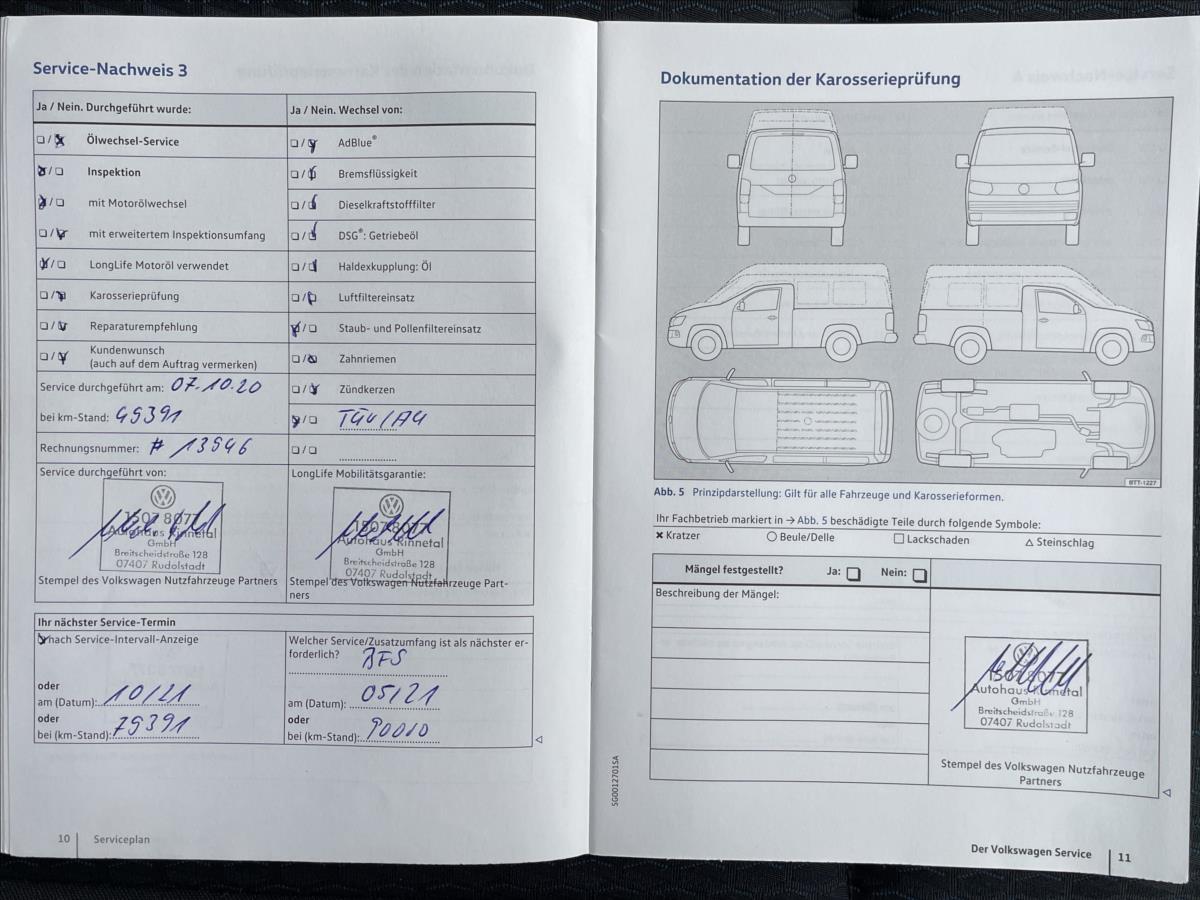 Service-Nachweis 3
Ja / Nein. Durchgeführt wurde:
Ja / Nein. Wechsel von:
Ölwechsel-Service
AdBlue®
Inspektion
Bremsflüssigkeit
mit Motorölwechsel
Dieselkraftstofffilter
mit erweitertem Inspektionsumfang
DSG®: Getriebeöl
LongLife Motoröl verwendet
Haldexkupplung: Öl
Karosserieprüfung
Luftfiltereinsatz
Reparaturempfehlung
Staub- und Pollenfiltereinsatz
Kundenwunsch
(auch auf dem Auftrag vermerken)
Zahnriemen
Service durchgeführt am: 07.10.20
Zündkerzen
bei km-Stand: 49391
TÜV/AU
Rechnungsnummer: # 13946
Service durchgeführt von:
LongLife Mobilitätsgarantie:
1507 8077
Autohaus Rinnetal
GmbH
Breitscheidstraße 128
07407 Rudolstadt
1507 8077
Autohaus Rinnetal
GmbH
Breitscheidstraße 128
07407 Rudolstadt
Stempel des Volkswagen Nutzfahrzeuge Partners
Stempel des Volkswagen Nutzfahrzeuge Part-
ners
Ihr nächster Service-Termin
nach Service-Intervall-Anzeige
Welcher Service/Zusatzumfang ist als nächster er-
forderlich? BFS
oder
am (Datum): 10/21
am (Datum): 05/21
oder
bei (km-Stand): 79391
oder
bei (km-Stand): 90010
10
Serviceplan
Dokumentation der Karosserieprüfung
BTT-1227
Abb. 5 Prinzipdarstellung: Gilt für alle Fahrzeuge und Karosserieformen.
Ihr Fachbetrieb markiert in → Abb. 5 beschädigte Teile durch folgende Symbole:
Kratzer
Beule/Delle
Lackschaden
Steinschlag
Mängel festgestellt?
Ja:
Nein:
Beschreibung der Mängel:
1507 8077
Autohaus Rinnetal
GmbH
Breitscheidstraße 128
07407 Rudolstadt
Stempel des Volkswagen Nutzfahrzeuge
Partners
SG0012701SA
Der Volkswagen Service
11